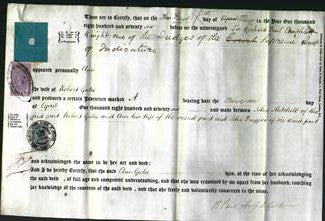 These are to Certify, that on the First day of April in the Year One thousand
Eight hundred and seventy six before me the undersigned Sir Richard Paul Amphlett
Knight one of the Judges of the Court Supreme Court
of Judicature
appeared personally Ann
the wife of Robert Yates
and produces a certain Indenture marked A bearing date the day
of April One thousand eight hundred and seventy six and made between John Mitchell of the
first part Robert Yates and Ann his Wife of the second part and John of the third part
and acknowledged the same to be her act and deed:
And I do hereby Certify, that the said Ann Yates was, at the time of her acknowledging
the said deed, of full age and competent understanding, and that she was examined by me apart from her husband, touching
her knowledge of the contents of the said deed, and that she freely and voluntarily consented to the same.
R Paul Amphlett